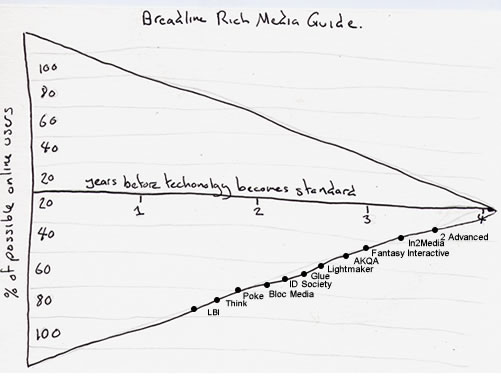 Breadline Rich Media Guide.
% of possible online users
100
80
60
40
20
years before techonolgy becomes standard
20
1
2
3
4
40
2 Advanced
In2Media
Fantasy Interactive
AKQA
60
Lightmaker
Glue
ID Society
Bloc Media
Poke
80
Think
LBI
100